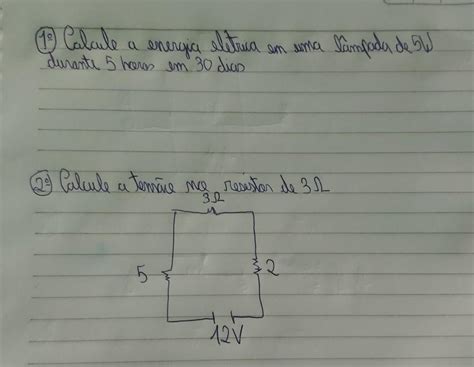 1º Calcule a energia eletrica em uma lâmpada de 5W
durante 5 horas em 30 dias
2º Calcule a tensão no resistor de 3Ω
3Ω
5
2
12V